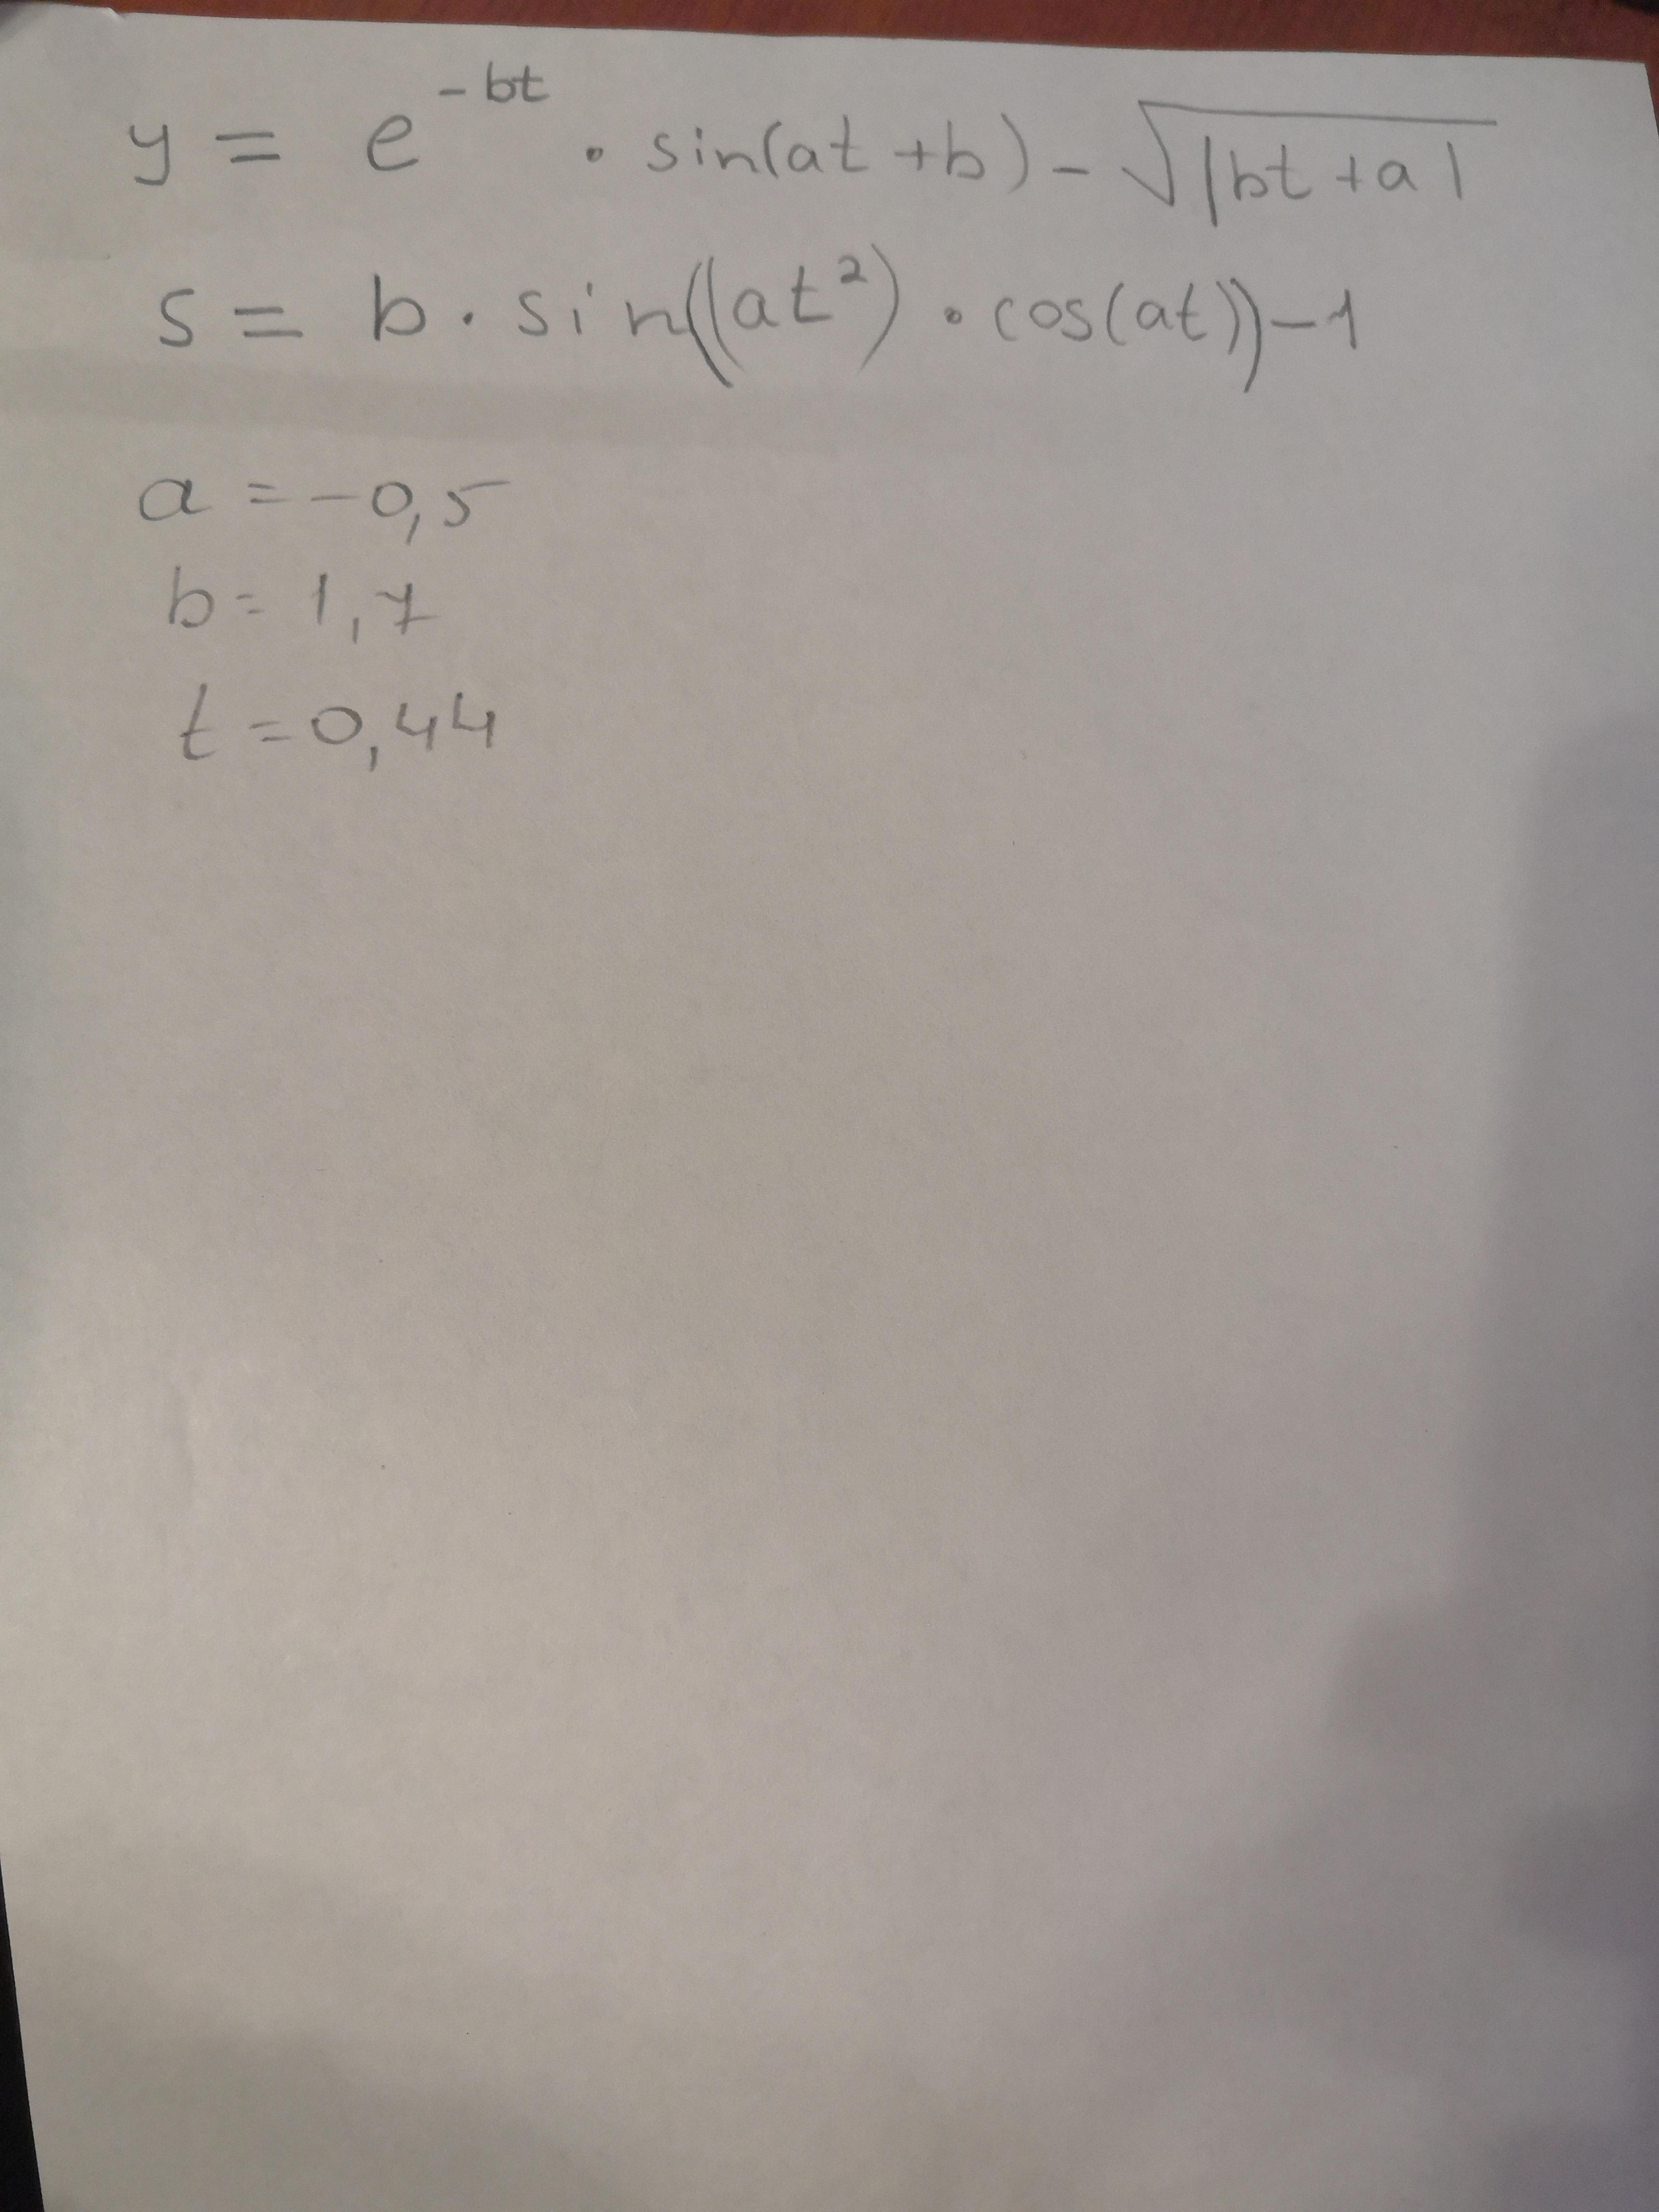 y = e^{-bt} · sin(at + b) - √|bt + a|
s = b · sin((at²) · cos(at)) - 1
a = -0,5
b = 1,7
t = 0,44